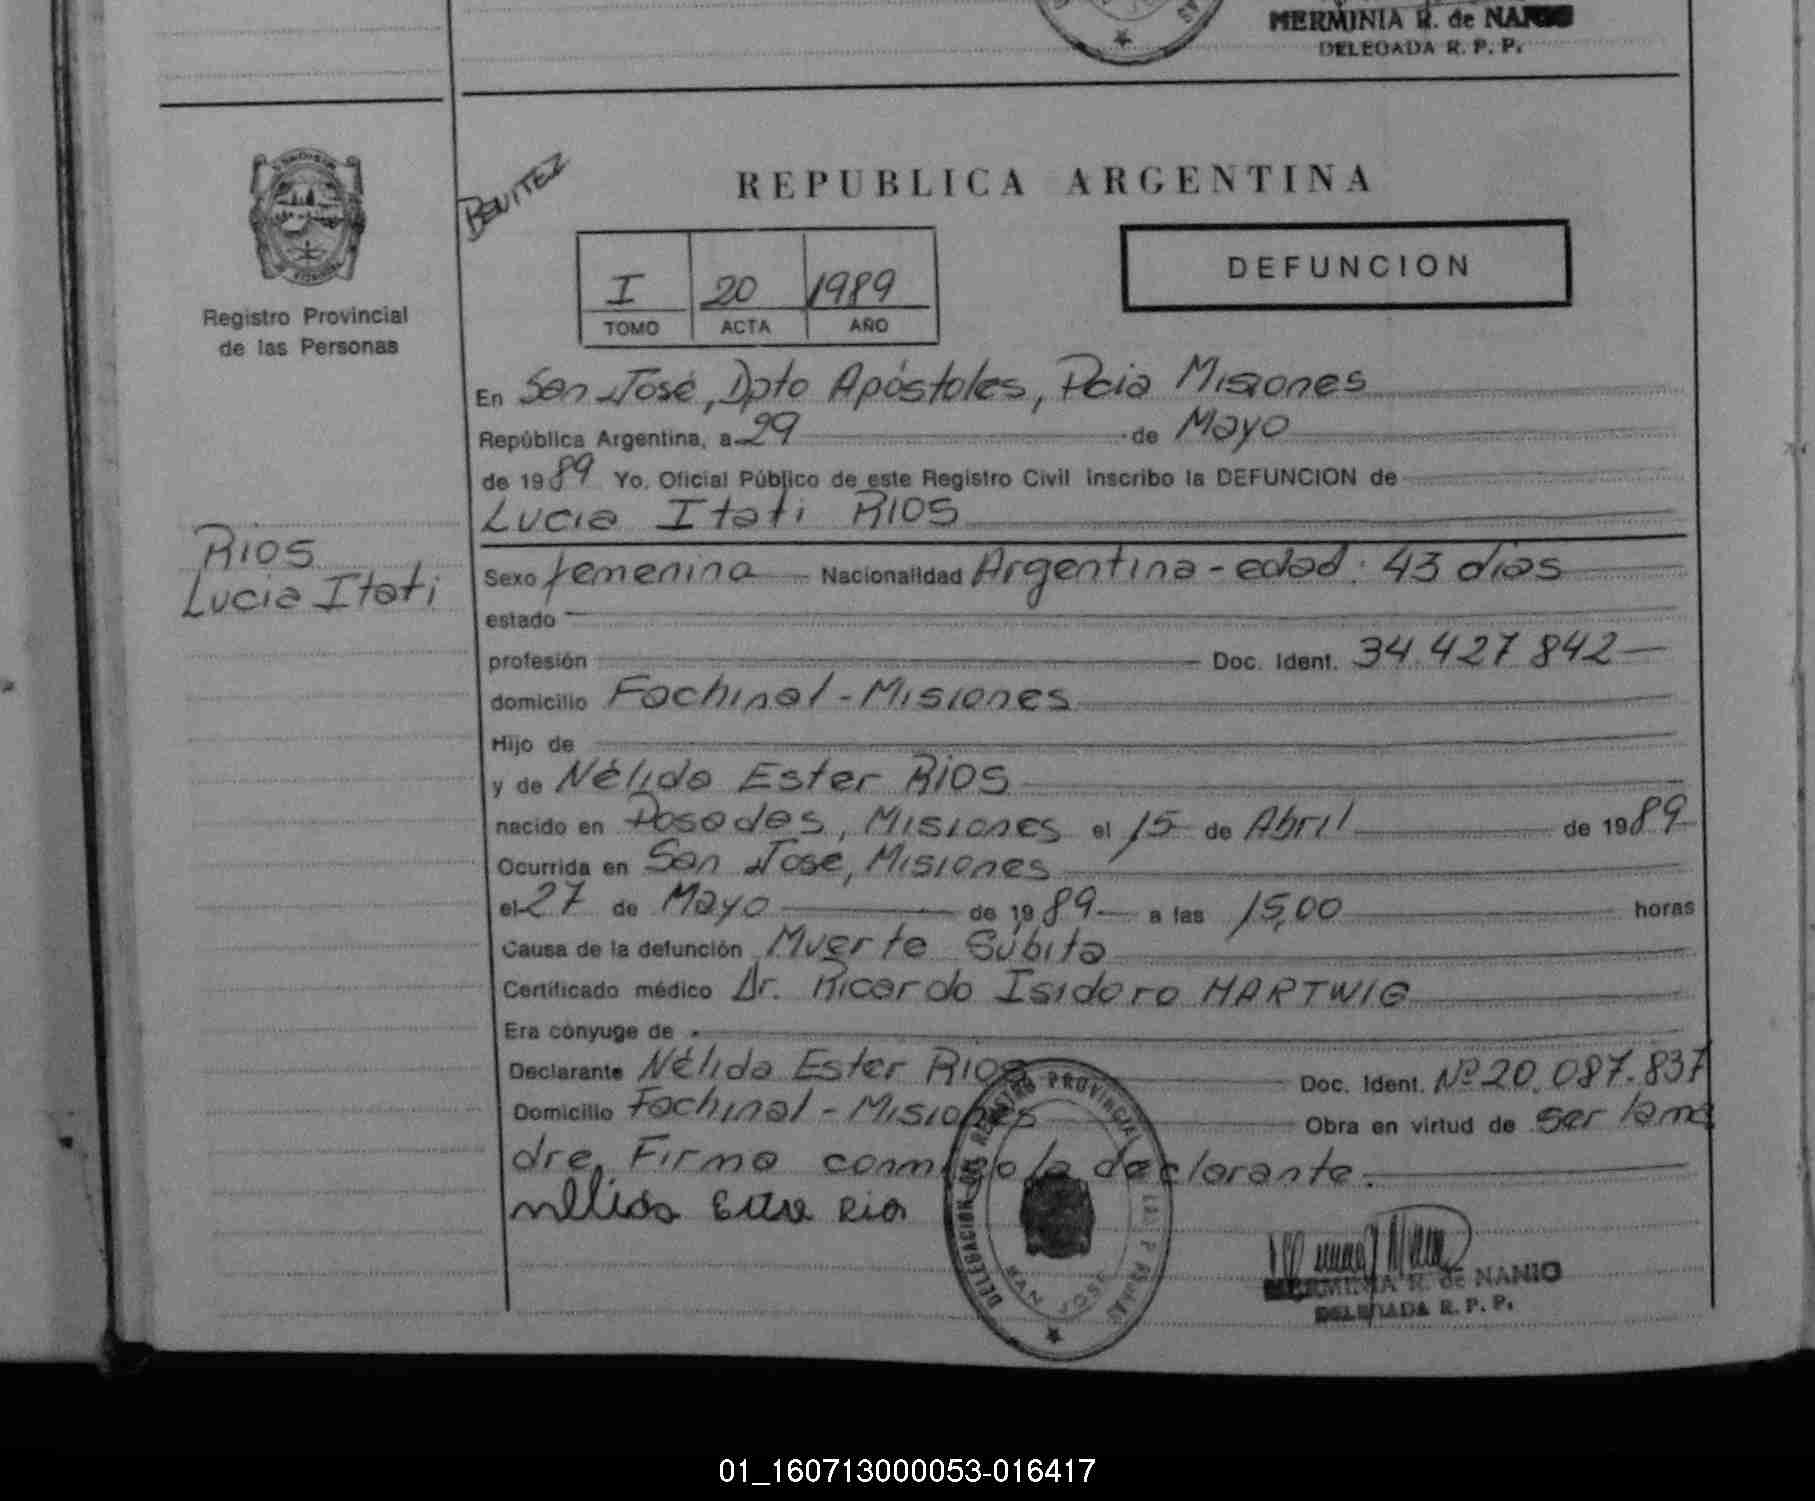 HERMINIA R. de NANIO
DELEGADA R. P. P.
BENITEZ
REPUBLICA ARGENTINA
I 20 1989
TOMO ACTA AÑO
DEFUNCION
Registro Provincial
de las Personas
En San José, Dpto Apóstoles, Pcia Misiones
República Argentina, a 29 de Mayo
de 1989 Yo, Oficial Público de este Registro Civil inscribo la DEFUNCION de
Lucia Itati RIOS
RIOS
Lucia Itati
Sexo femenina Nacionalidad Argentina - edad: 43 dias
estado
profesión Doc. Ident. 34.427.842
domicilio Fachinal - Misiones
Hijo de
y de Nélida Ester RIOS
nacido en Posadas, Misiones el 15 de Abril de 1989
Ocurrida en San José, Misiones
el 27 de Mayo de 1989 a las 15,00 horas
Causa de la defunción Muerte Súbita
Certificado médico Dr. Ricardo Isidoro HARTWIG
Era cónyuge de
Declarante Nélida Ester RIOS Doc. Ident. Nº 20.087.837
Domicilio Fachinal - Misiones Obra en virtud de ser la ma
dre, Firma conmigo la declarante.
DELEGACION DEL REGISTRO PROVINCIAL DE LAS PERSONAS
SAN JOSE
HERMINIA R. de NANIO
DELEGADA R. P. P.
01_160713000053-016417